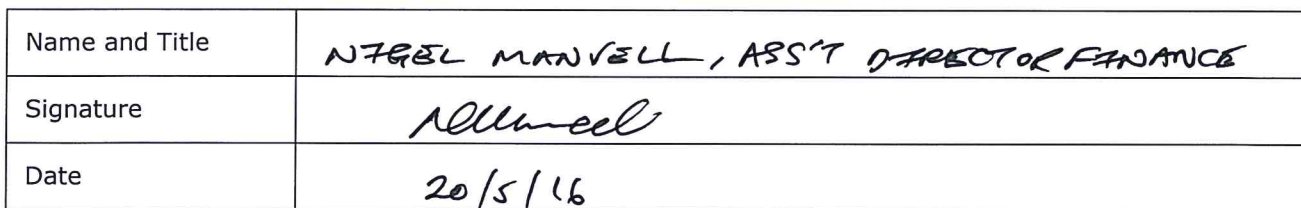 Name and Title NIGEL MANVELL, ASS'T DIRECTOR FINANCE
Signature
Date 20/5/16